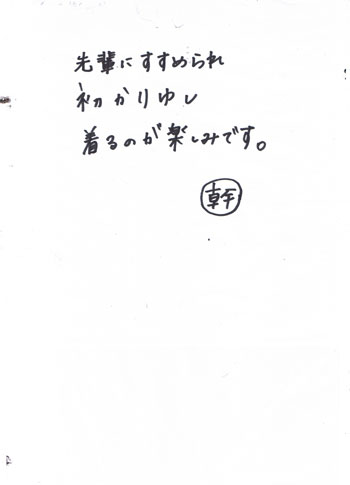 先輩にすすめられ
初かりゆし
着るのが楽しみです。
幹